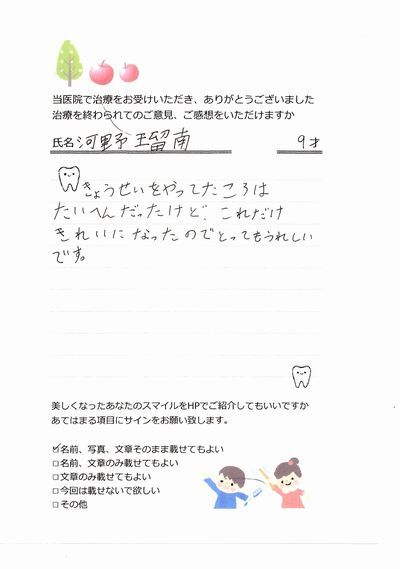 当医院で治療をお受けいただき、ありがとうございました
治療を終わられてのご意見、ご感想をいただけますか
氏名 河野 瑠南 9才
きょうせいをやってたころは
たいへんだったけど、これだけ
きれいになったのでとってもうれしい
です。
美しくなったあなたのスマイルをHPでご紹介してもいいですか
あてはまる項目にサインをお願い致します。
☑名前、写真、文章そのまま載せてもよい
□名前、文章のみ載せてもよい
□文章のみ載せてもよい
□今回は載せないで欲しい
□その他